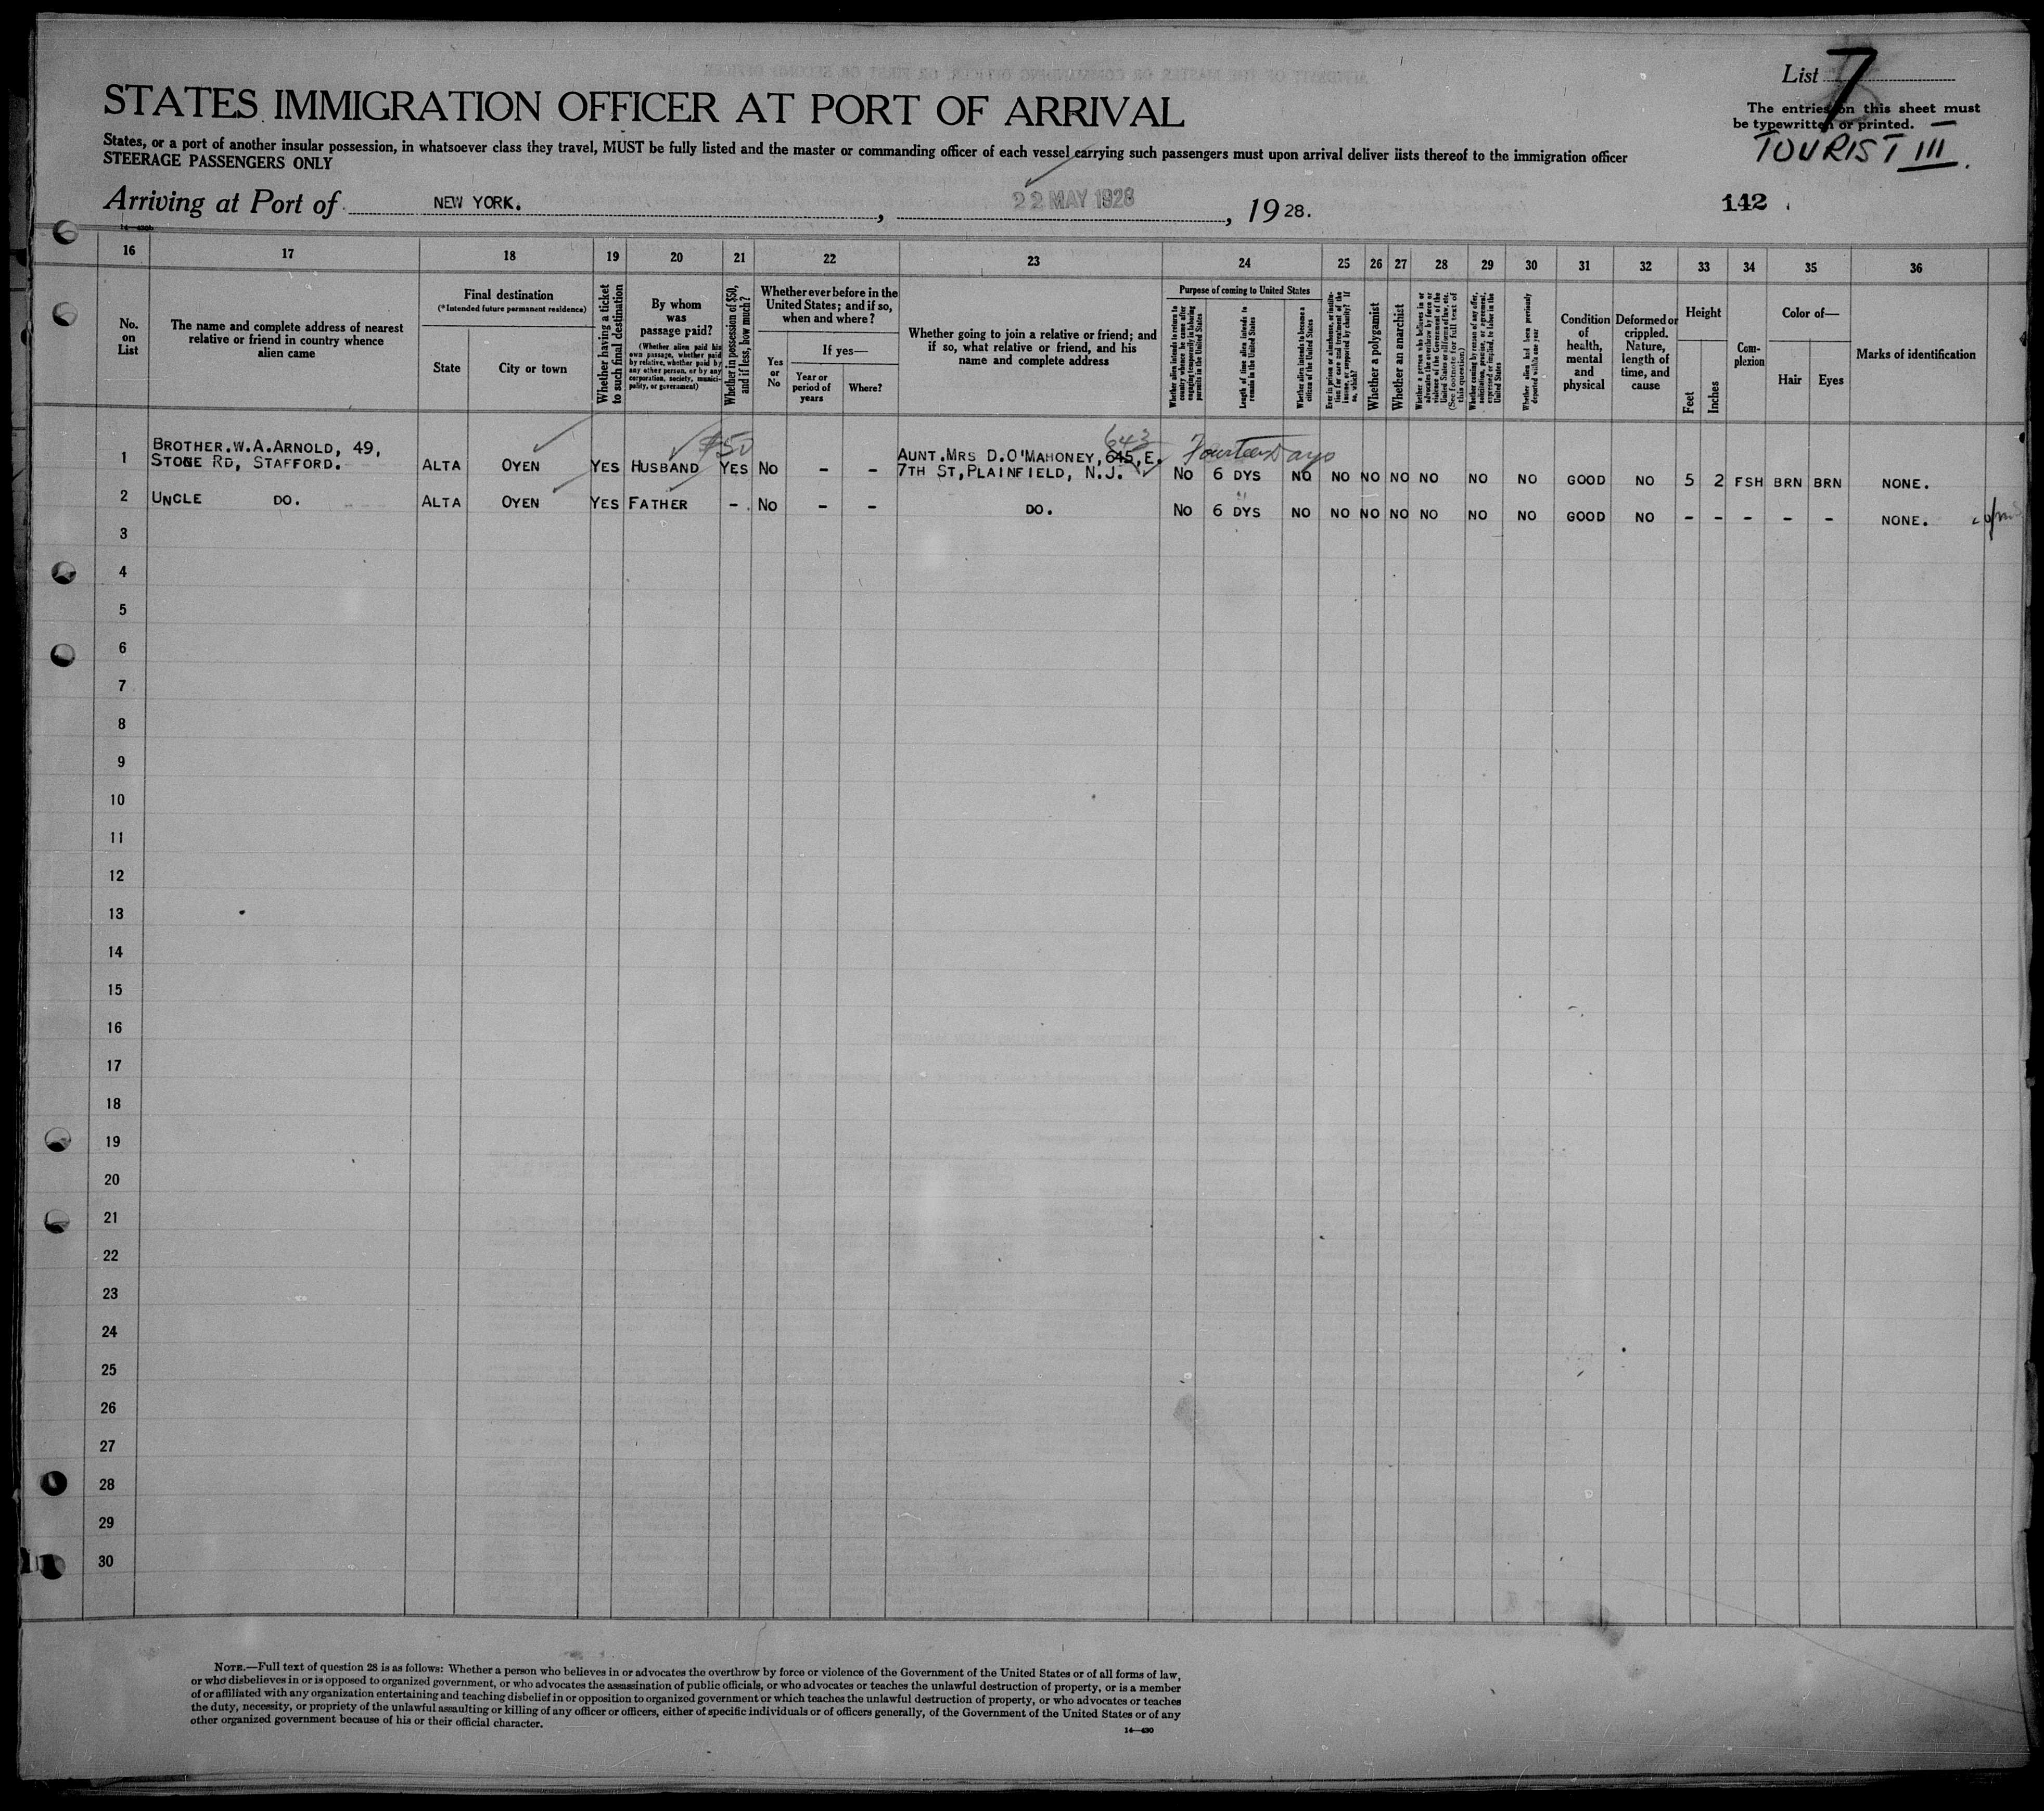 List 7
The entries on this sheet must
be typewritten or printed.
TOURIST III.
STATES IMMIGRATION OFFICER AT PORT OF ARRIVAL
States, or a port of another insular possession, in whatsoever class they travel, MUST be fully listed and the master or commanding officer of each vessel carrying such passengers must upon arrival deliver lists thereof to the immigration officer
STEERAGE PASSENGERS ONLY
Arriving at Port of NEW YORK. , 22 MAY 1928 , 1928.
142
16 17 18 19 20 21 22 23 24 25 26 27 28 29 30 31 32 33 34 35 36
No.
on
List
The name and complete address of nearest
relative or friend in country whence
alien came
Final destination
(*Intended future permanent residence)
State
City or town
Whether having a ticket
to such final destination
By whom
was
passage paid?
(Whether alien paid his
own passage, whether paid
by relative, whether paid by
any other person, or by any
corporation, society, munici-
pality, or government)
Whether in possession of $50,
and if less, how much?
Whether ever before in the
United States; and if so,
when and where?
Yes
or
No
If yes—
Year or
period of
years
Where?
Whether going to join a relative or friend; and
if so, what relative or friend, and his
name and complete address
Purpose of coming to United States
Whether alien intends to return to
country whence he came after
engaging temporarily in laboring
pursuits in the United States
Length of time alien intends to
remain in the United States
Whether alien intends to become a
citizen of the United States
Ever in prison or almshouse, or institu-
tion for care and treatment of the
insane, or supported by charity? If
so, which?
Whether a polygamist
Whether an anarchist
Whether a person who believes in or
advocates the overthrow by force or
violence of the Government of the
United States or all forms of law, etc.
(See footnote for full text of
this question)
Whether coming by reason of any offer,
solicitation, promise, or agreement,
expressed or implied, to labor in the
United States
Whether alien had been previously
deported within one year
Condition
of
health,
mental
and
physical
Deformed or
crippled.
Nature,
length of
time, and
cause
Height
Feet
Inches
Com-
plexion
Color of—
Hair
Eyes
Marks of identification
$50
643
Fourteen Days
BROTHER.W.A.ARNOLD, 49,
AUNT.MRS D.O'MAHONEY, 645, E.
1 STONE RD, STAFFORD. ALTA OYEN YES HUSBAND YES NO - - 7TH ST, PLAINFIELD, N.J. NO 6 DYS NO NO NO NO NO NO NO GOOD NO 5 2 FSH BRN BRN NONE.
2 UNCLE DO. ALTA OYEN YES FATHER - NO - - DO. NO 6 DYS NO NO NO NO NO NO NO GOOD NO - - - - - NONE.
3
4
5
6
7
8
9
10
11
12
13
14
15
16
17
18
19
20
21
22
23
24
25
26
27
28
29
30
NOTE.—Full text of question 28 is as follows: Whether a person who believes in or advocates the overthrow by force or violence of the Government of the United States or of all forms of law,
or who disbelieves in or is opposed to organized government, or who advocates the assassination of public officials, or who advocates or teaches the unlawful destruction of property, or is a member
of or affiliated with any organization entertaining and teaching disbelief in or opposition to organized government or which teaches the unlawful destruction of property, or who advocates or teaches
the duty, necessity, or propriety of the unlawful assaulting or killing of any officer or officers, either of specific individuals or of officers generally, of the Government of the United States or of any
other organized government because of his or their official character.
14—430